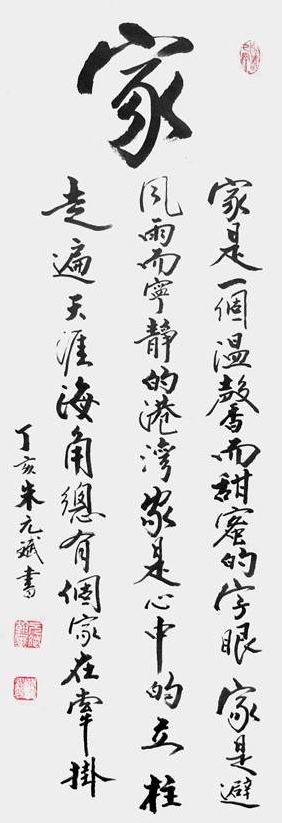 家
家是一個温馨而甜蜜的字眼家是避
風雨而寧靜的港灣家是心中的立柱
走遍天涯海角總有個家在牽掛
丁亥朱元斌書